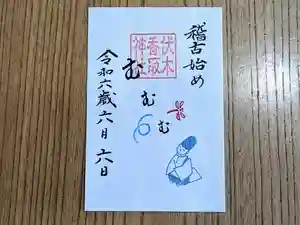 稽古始め
伏木
香取
神社
む
む
6
む
令和六歳六月六日